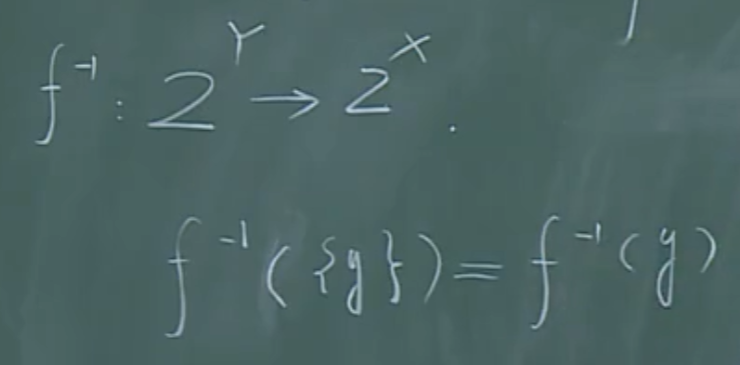 f⁻¹: 2^Y → 2^X.
f⁻¹({y}) = f⁻¹(y)